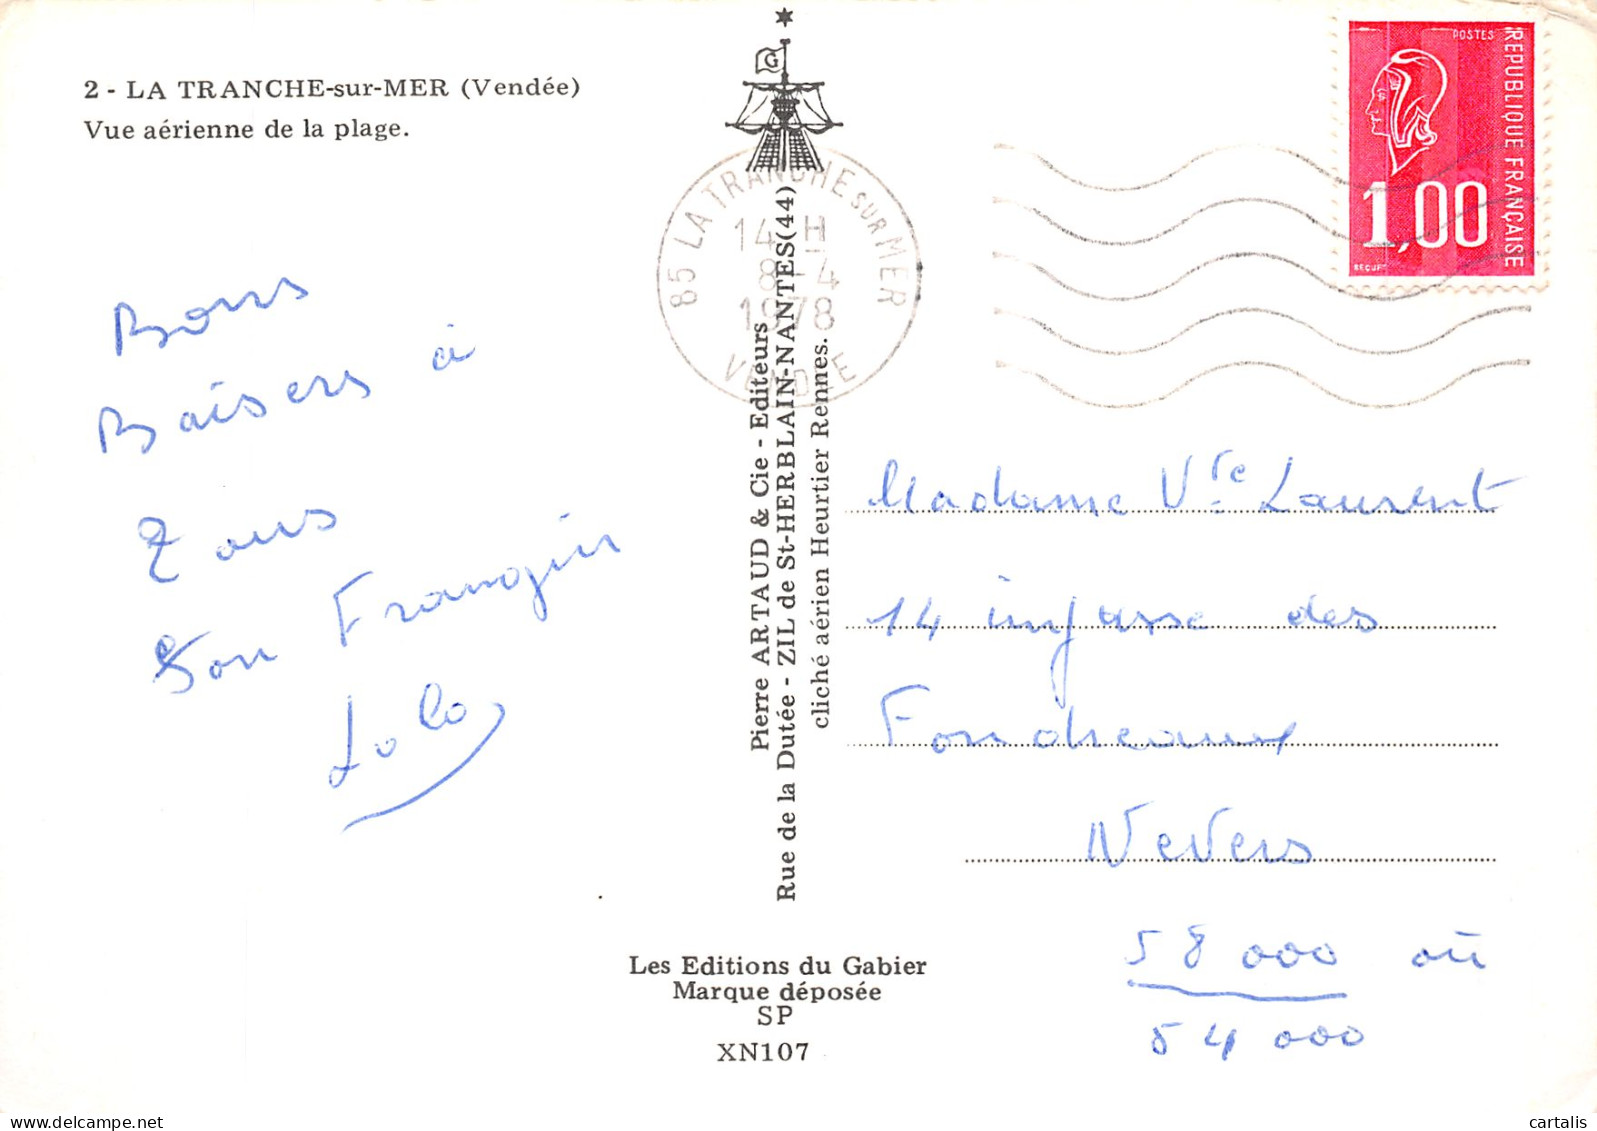 2 - LA TRANCHE-sur-MER (Vendée)
Vue aérienne de la plage.
G
POSTES
REPUBLIQUE FRANÇAISE
1,00
BEQUET
85 LA TRANCHE SUR MER
14 H
8 - 4
1978
VENDEE
Bons
Baisers à
Tous
Ton Frangin
Lolo
Pierre ARTAUD & Cie - Editeurs
Rue de la Dutée - ZIL de St-HERBLAIN-NANTES (44)
cliché aérien Heurtier Rennes.
Madame Vve Laurent
14 impasse des
Fondreaux
Nevers
58 000 ou
54 000
Les Editions du Gabier
Marque déposée
SP
XN107
cartalis